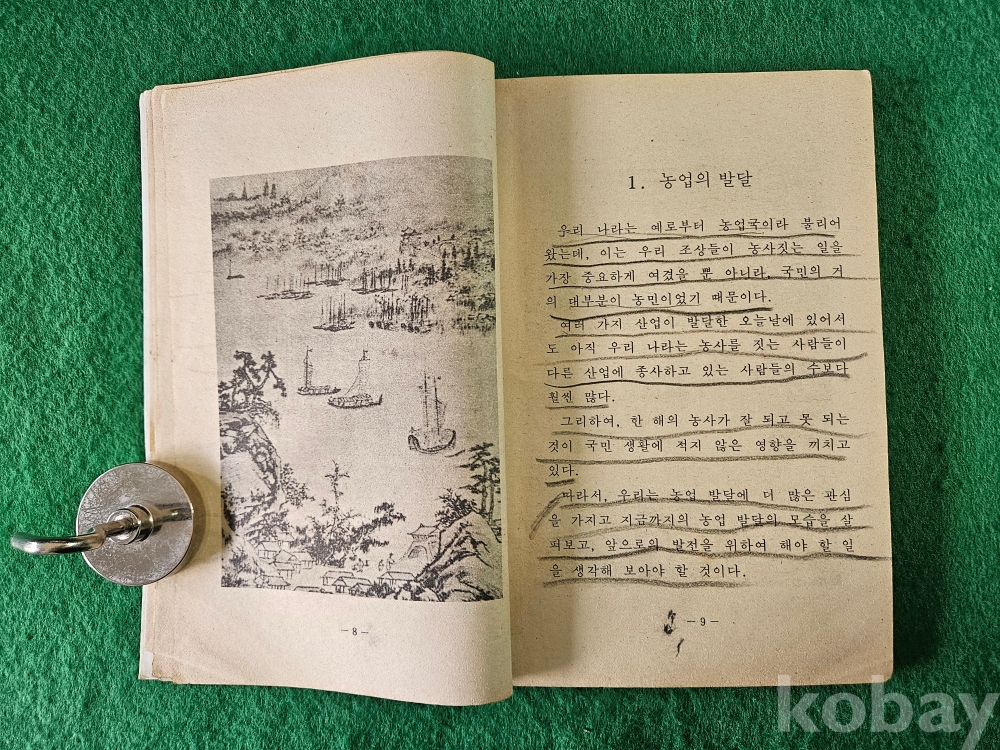 1. 농업의 발달
우리 나라는 예로부터 농업국이라 불리어
왔는데, 이는 우리 조상들이 농사짓는 일을
가장 중요하게 여겼을 뿐 아니라, 국민의 거
의 대부분이 농민이었기 때문이다.
여러 가지 산업이 발달한 오늘날에 있어서
도 아직 우리 나라는 농사를 짓는 사람들이
다른 산업에 종사하고 있는 사람들의 수보다
훨씬 많다.
그리하여, 한 해의 농사가 잘 되고 못 되는
것이 국민 생활에 적지 않은 영향을 끼치고
있다.
따라서, 우리는 농업 발달에 더 많은 관심
을 가지고 지금까지의 농업 발달의 모습을 살
펴보고, 앞으로의 발전을 위하여 해야 할 일
을 생각해 보아야 할 것이다.
－8－
－9－
kobay